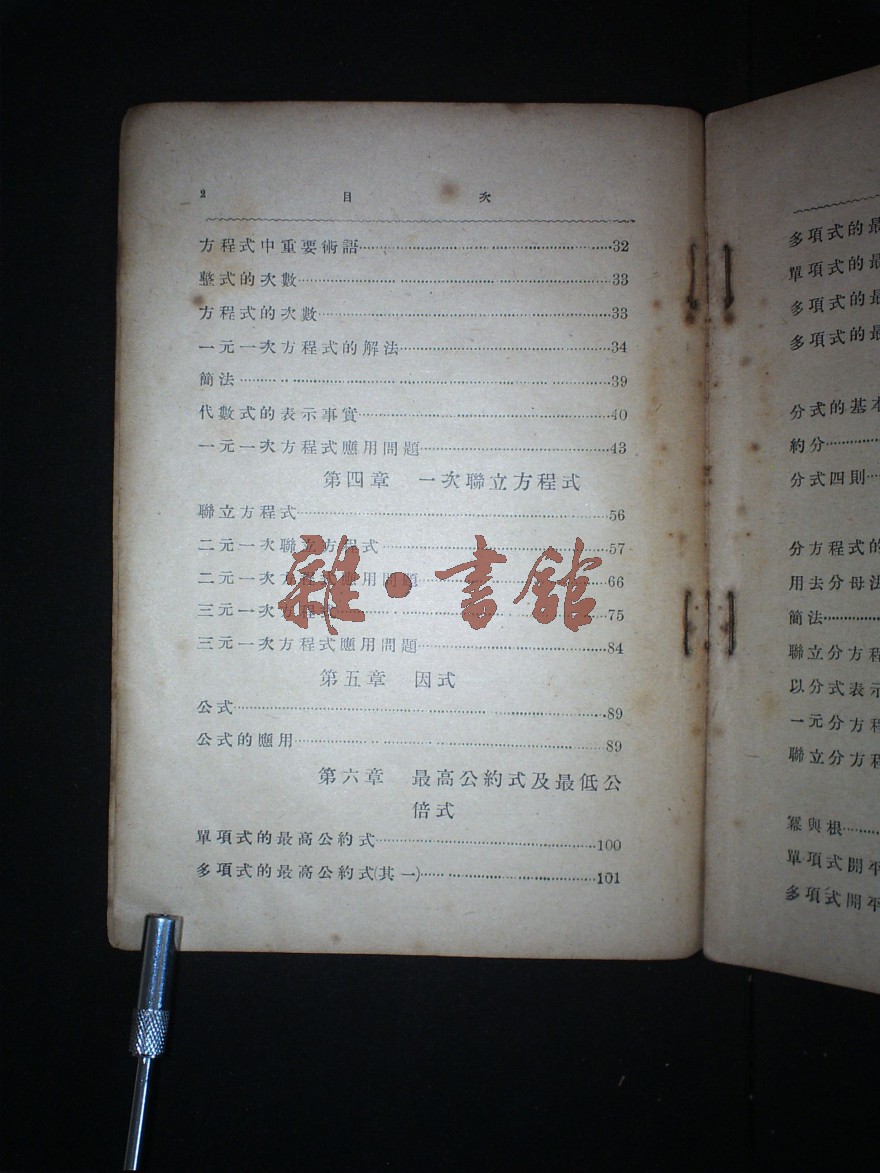 2 目次
方程式中重要術語……32
整式的次數……33
方程式的次數……33
一元一次方程式的解法……34
簡法……39
代數式的表示事實……40
一元一次方程式應用問題……43
第四章 一次聯立方程式
聯立方程式……56
二元一次聯立方程式……57
二元一次方程式應用問題……66
三元一次方程式……75
三元一次方程式應用問題……84
第五章 因式
公式……89
公式的應用……89
第六章 最高公約式及最低公
倍式
單項式的最高公約式……100
多項式的最高公約式(其一)……101
雜·書館
多項式的最
單項式的最
多項式的最
多項式的最
分式的基本
約分……
分式四則……
分方程式的
用去分母法
簡法……
聯立分方程
以分式表示
一元分方程
聯立分方程
冪與根……
單項式開平
多項式開平